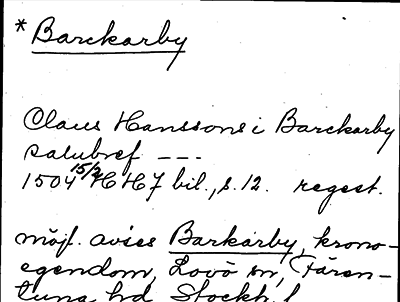 * Barckarby
Claus Hanssons i Barckarby
salubref ---
1504 15/2 HH7 bil., s. 12. regest.
möjl. avses Barkarby, krono-
egendom, Lovö sn, Fären-
tuna hd Stockh. l